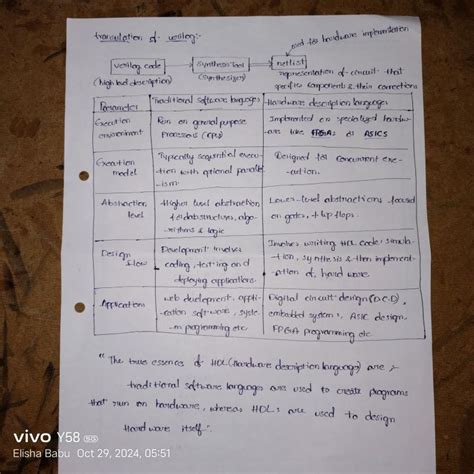 translation of verilog:-
used for hardware implementation
verilog code → synthesis tool → netlist
(high level description) (Synthesizer) representation of circuit that
specifies components & their connections
Parameter Traditional software languages Hardware description languages
Execution environment Run on general purpose Processors (CPUs) Implemented on specialized hardwares like FPGAs or ASICS
Execution model Typically sequential execution with optional parallelism Designed for concurrent execution.
Abstraction level Higher level abstraction for data structures, algorithms & logic Lower level abstractions focused on gates, flip flops
Design flow Development involves coding, testing and deploying applications Involves writing HDL code, simulation, synthesis & then implementation of hardware
Applications web development, application software, system programming etc Digital circuit design (D.C.D), embedded systems, ASIC design, FPGA programming etc
" The true essences of HDL (Hardware description languages) are
traditional software languages are used to create programs
that run on hardware, whereas HDLs are used to design
Hardware itself.
vivo Y58 5G
Elisha Babu Oct 29, 2024, 05:51